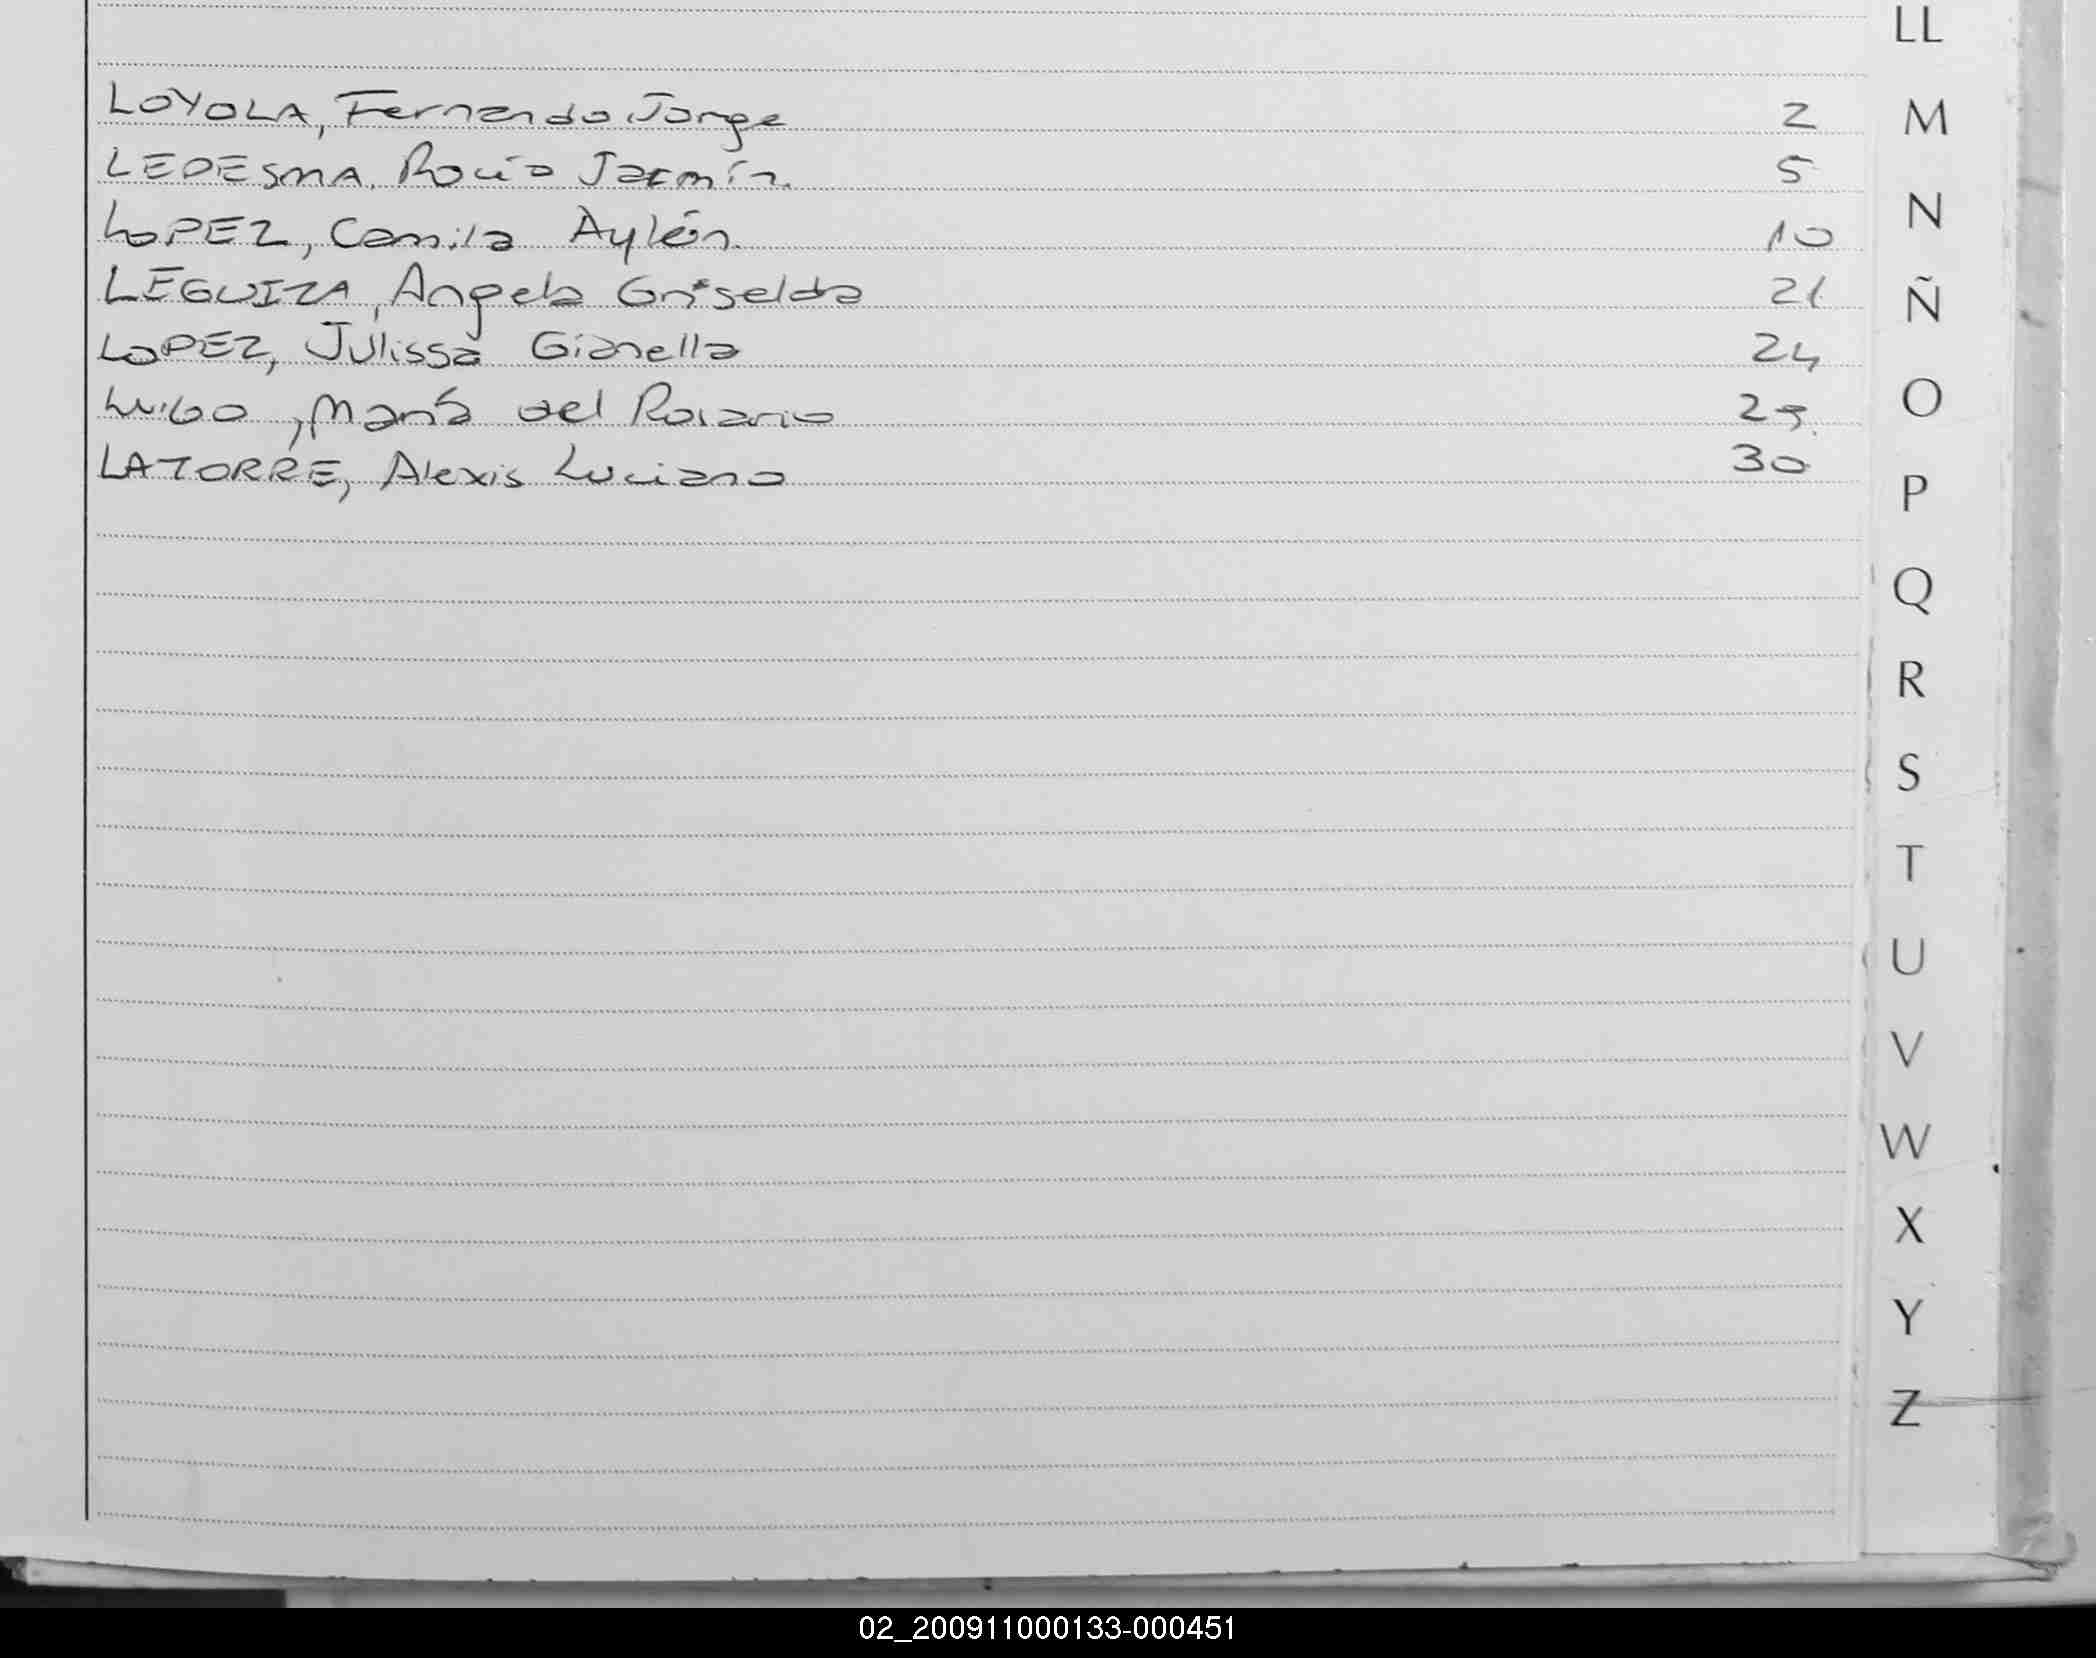 LL
LOYOLA, Fernando Jorge 2
M
LEDESMA, Rocío Jazmín. 5
N
LOPEZ, Camila Aylén. 10
LEGUIZA, Angela Griselda 21
Ñ
LOPEZ, Julissa Gianella 24
O
, María del Rosario
LATORRE, Alexis Luciano 30
P
Q
R
S
T
U
V
W
X
Y
Z
02_200911000133-000451